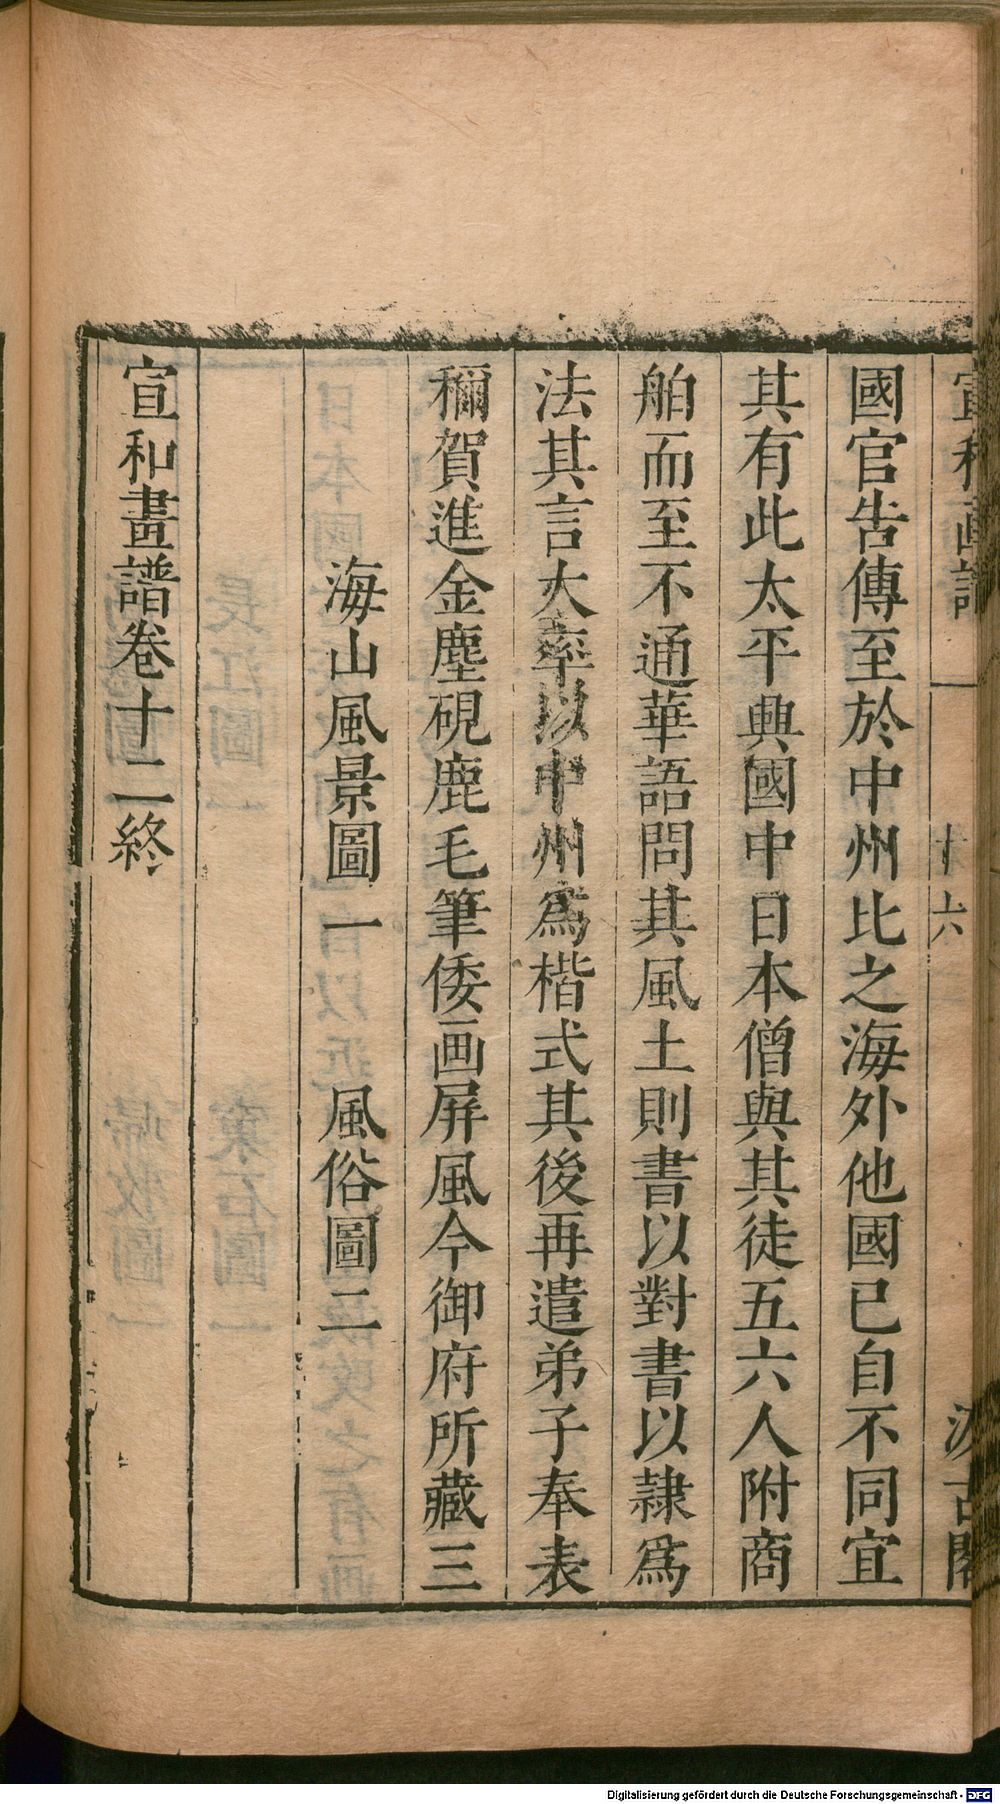 宣和画譜 十六 汲古閣
國官告傳至於中州比之海外他國已自不同宜
其有此太平興國中日本僧與其徒五六人附商
舶而至不通華語問其風土則書以對書以隸爲
法其言大率以中州爲楷式其後再遣弟子奉表
穪賀進金塵硯鹿毛筆倭画屏風今御府所藏三
海山風景圖一 風俗圖二
宣和畫譜卷十二終
Digitalisierung gefördert durch die Deutsche Forschungsgemeinschaft - DFG